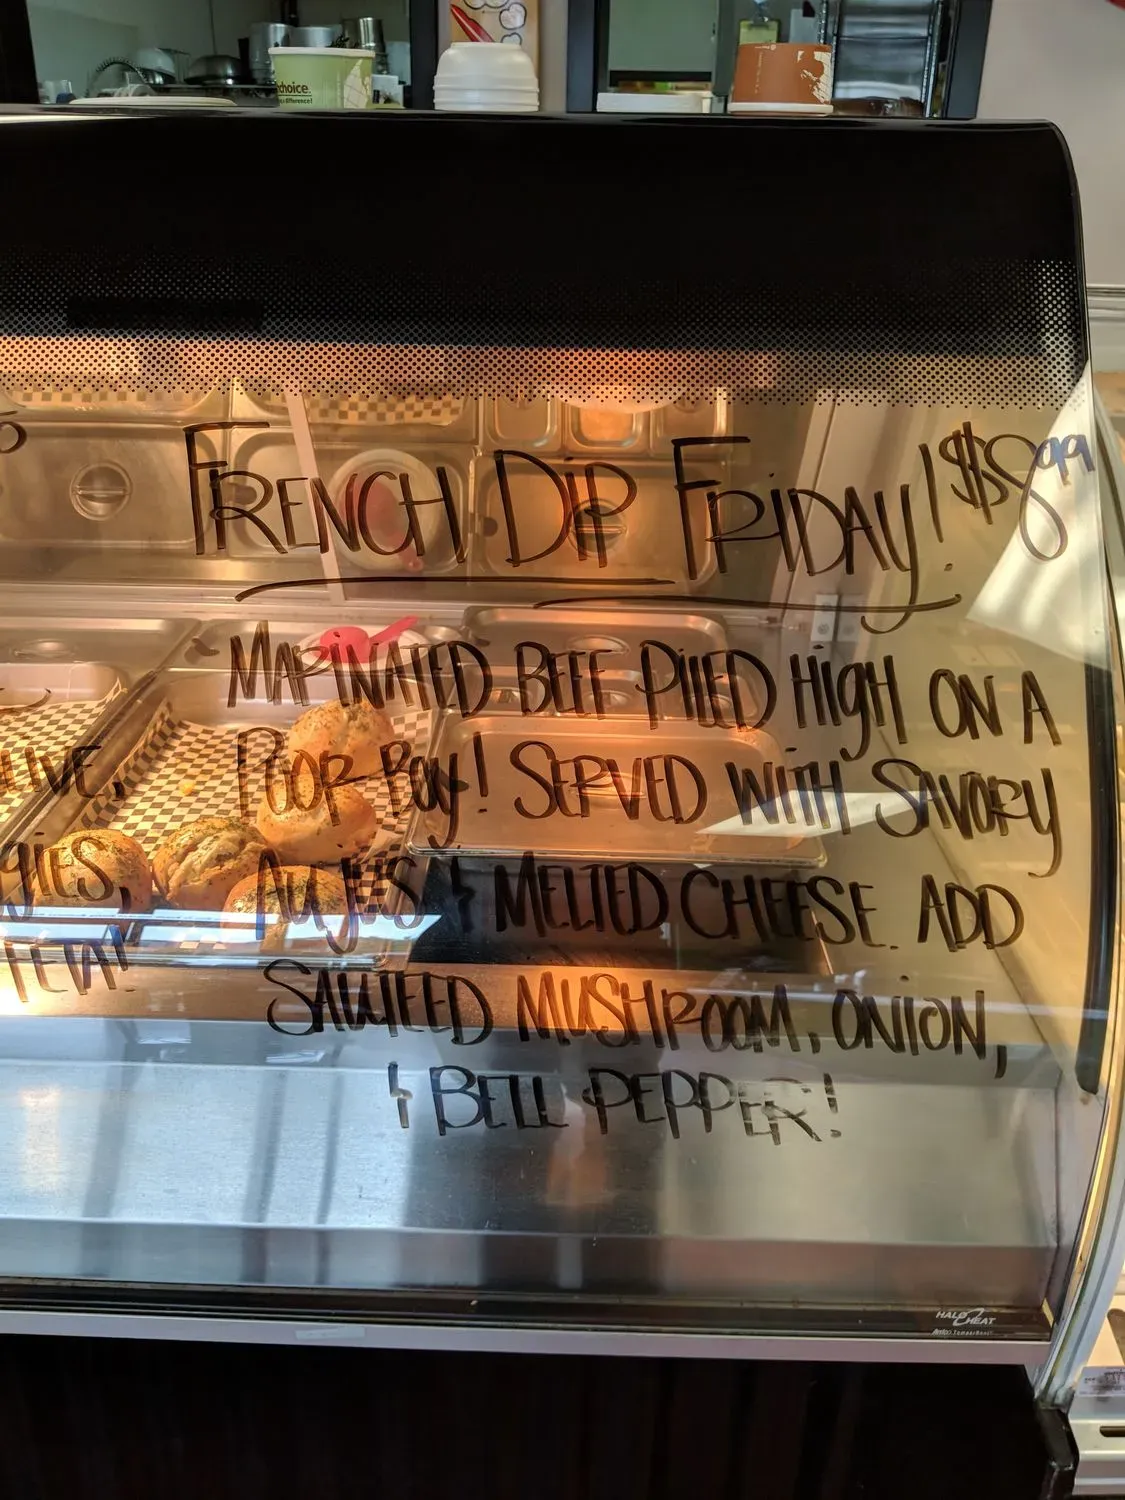 choice.
French Dip Friday! $8.99
Marinated Beef Piled High on a
Poor Boy! Served with Savory
Au Jus & Melted Cheese. Add
Sauteed Mushroom, Onion,
& Bell Pepper!
FETA!
HALO HEAT